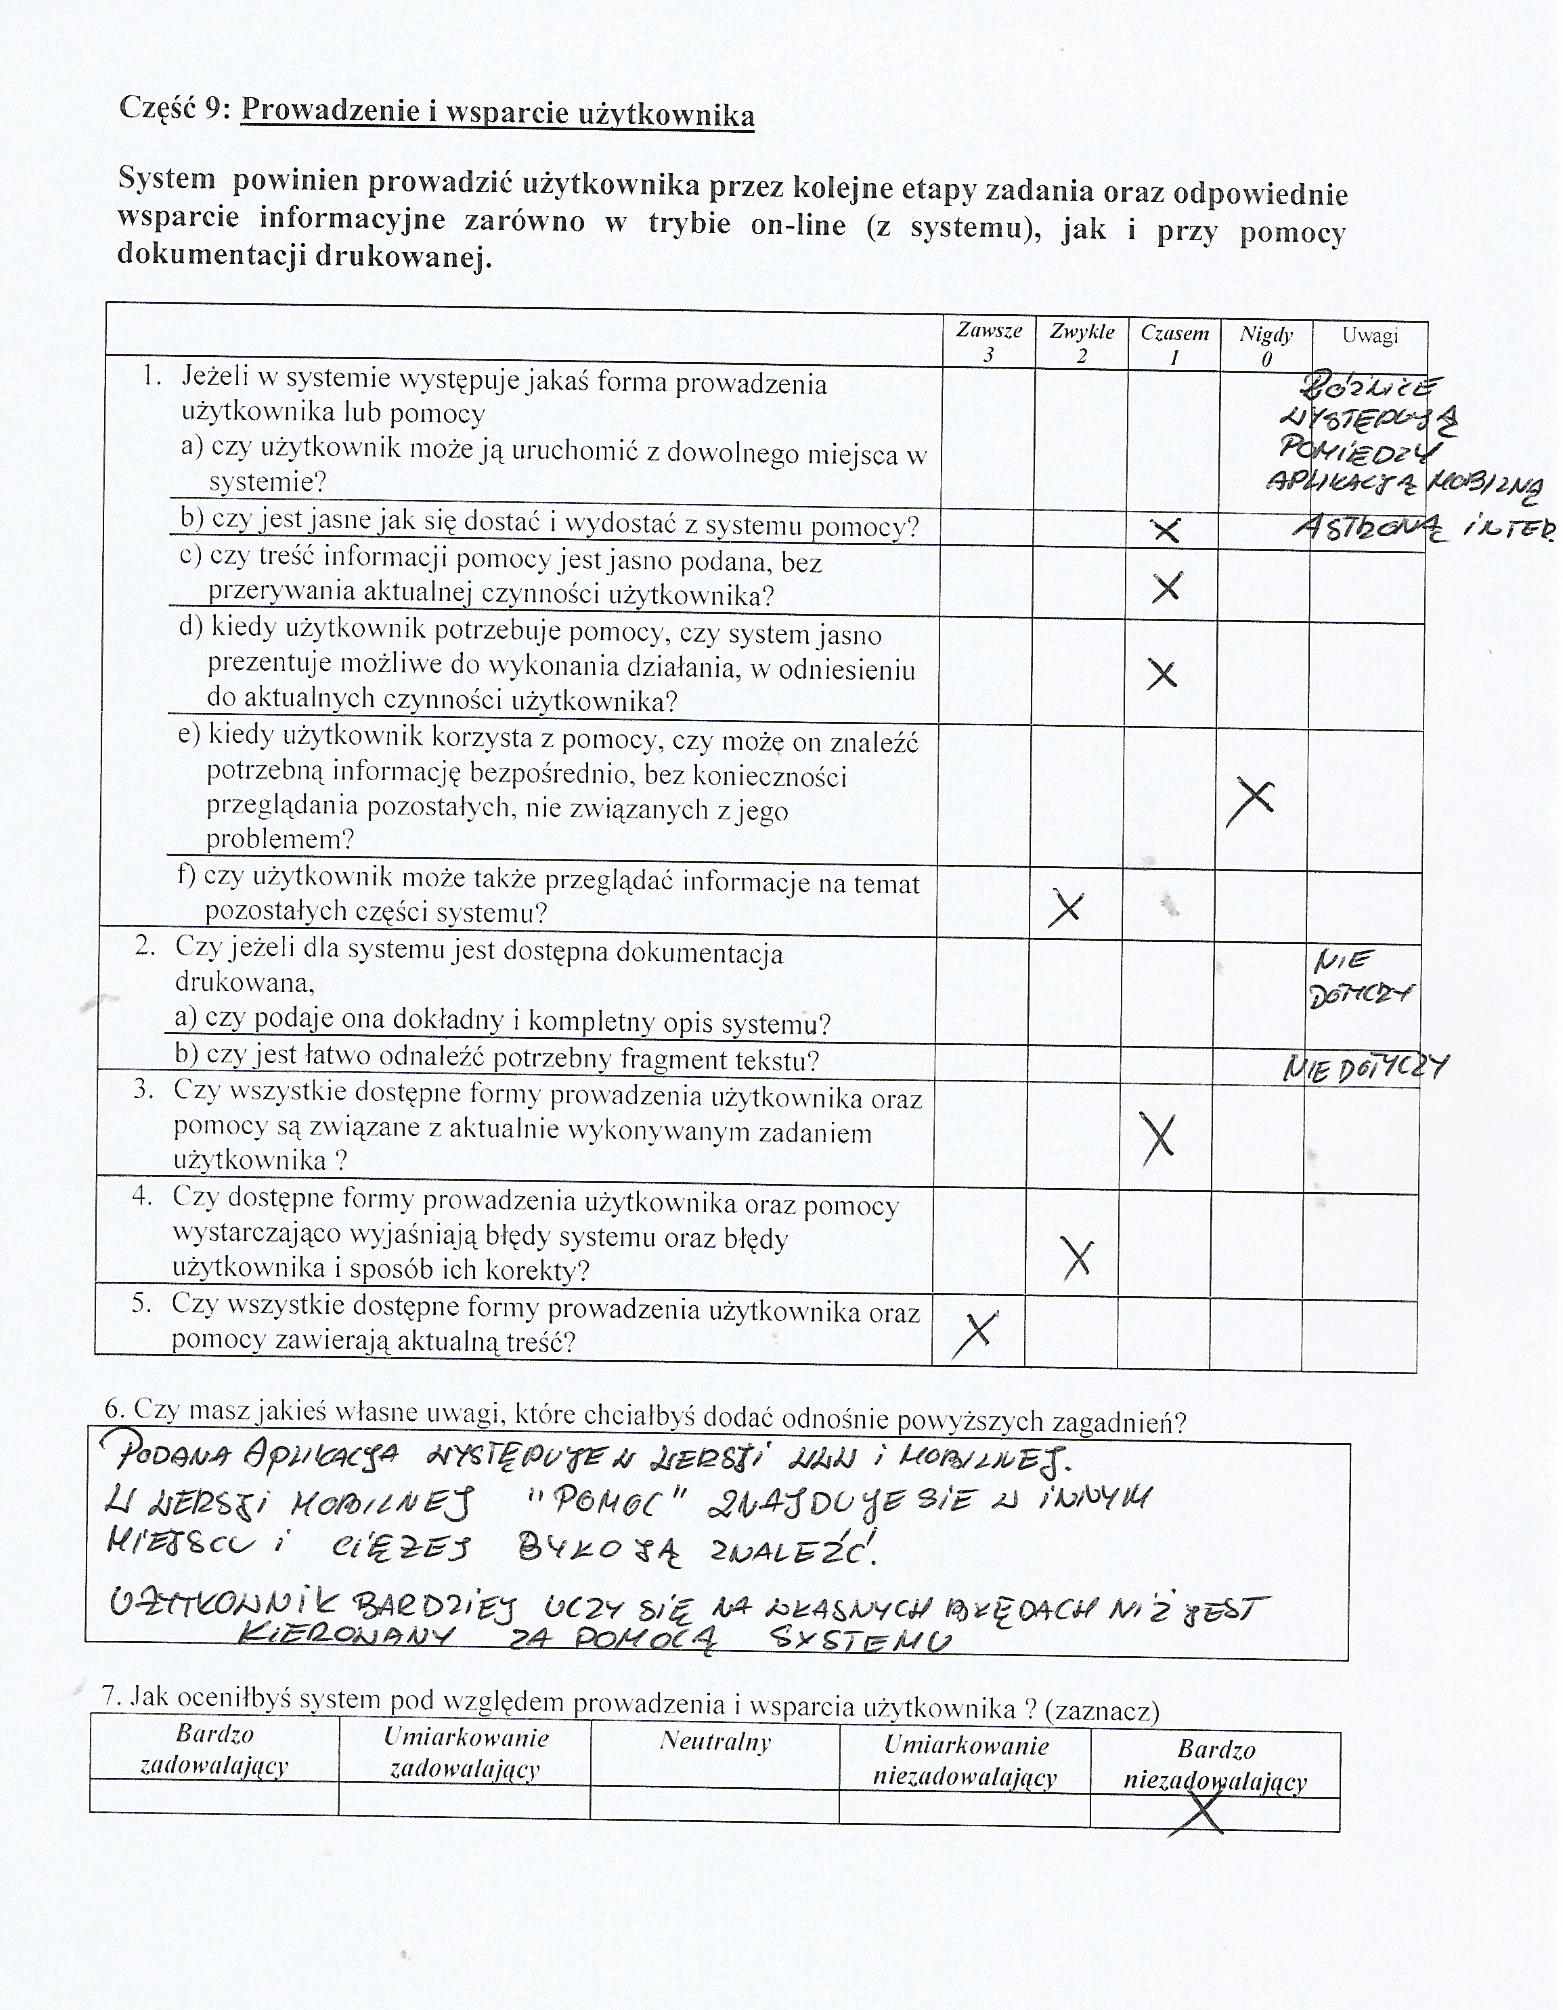 Część 9: Prowadzenie i wsparcie użytkownika
System powinien prowadzić użytkownika przez kolejne etapy zadania oraz odpowiednie
wsparcie informacyjne zarówno w trybie on-line (z systemu), jak i przy pomocy
dokumentacji drukowanej.
Zawsze Zwykle Czasem Nigdy Uwagi
3 2 1 0
1. Jeżeli w systemie występuje jakaś forma prowadzenia RÓŻNICE
użytkownika lub pomocy WYSTĘPUJĄ
a) czy użytkownik może ją uruchomić z dowolnego miejsca w POMIĘDZY
systemie? APLIKACJĄ MOBILNĄ
b) czy jest jasne jak się dostać i wydostać z systemu pomocy? X A STRONĄ INTER.
c) czy treść informacji pomocy jest jasno podana, bez
przerywania aktualnej czynności użytkownika? X
d) kiedy użytkownik potrzebuje pomocy, czy system jasno
prezentuje możliwe do wykonania działania, w odniesieniu X
do aktualnych czynności użytkownika?
e) kiedy użytkownik korzysta z pomocy, czy może on znaleźć
potrzebną informację bezpośrednio, bez konieczności
przeglądania pozostałych, nie związanych z jego X
problemem?
f) czy użytkownik może także przeglądać informacje na temat
pozostałych części systemu? X
2. Czy jeżeli dla systemu jest dostępna dokumentacja NIE
drukowana, DOTYCZY
a) czy podaje ona dokładny i kompletny opis systemu?
b) czy jest łatwo odnaleźć potrzebny fragment tekstu? NIE DOTYCZY
3. Czy wszystkie dostępne formy prowadzenia użytkownika oraz
pomocy są związane z aktualnie wykonywanym zadaniem X
użytkownika ?
4. Czy dostępne formy prowadzenia użytkownika oraz pomocy
wystarczająco wyjaśniają błędy systemu oraz błędy
użytkownika i sposób ich korekty? X
5. Czy wszystkie dostępne formy prowadzenia użytkownika oraz
pomocy zawierają aktualną treść? X
6. Czy masz jakieś własne uwagi, które chciałbyś dodać odnośnie powyższych zagadnień?
PODANA APLIKACJA WYSTĘPUJE W WERSJI WWW i MOBILNEJ.
W WERSJI MOBILNEJ "POMOC" ZNAJDUJE SIE W INNYM
MIEJSCU i CIĘŻEJ BYŁO JĄ ZNALEŹĆ.
UŻYTKOWNIK BARDZIEJ UCZY SIĘ NA WŁASNYCH BŁĘDACH NIŻ JEST
KIEROWANY ZA POMOCĄ SYSTEMU
7. Jak oceniłbyś system pod względem prowadzenia i wsparcia użytkownika ? (zaznacz)
Bardzo Umiarkowanie Neutralny Umiarkowanie Bardzo
zadowalający zadowalający niezadowalający niezadowalający
X